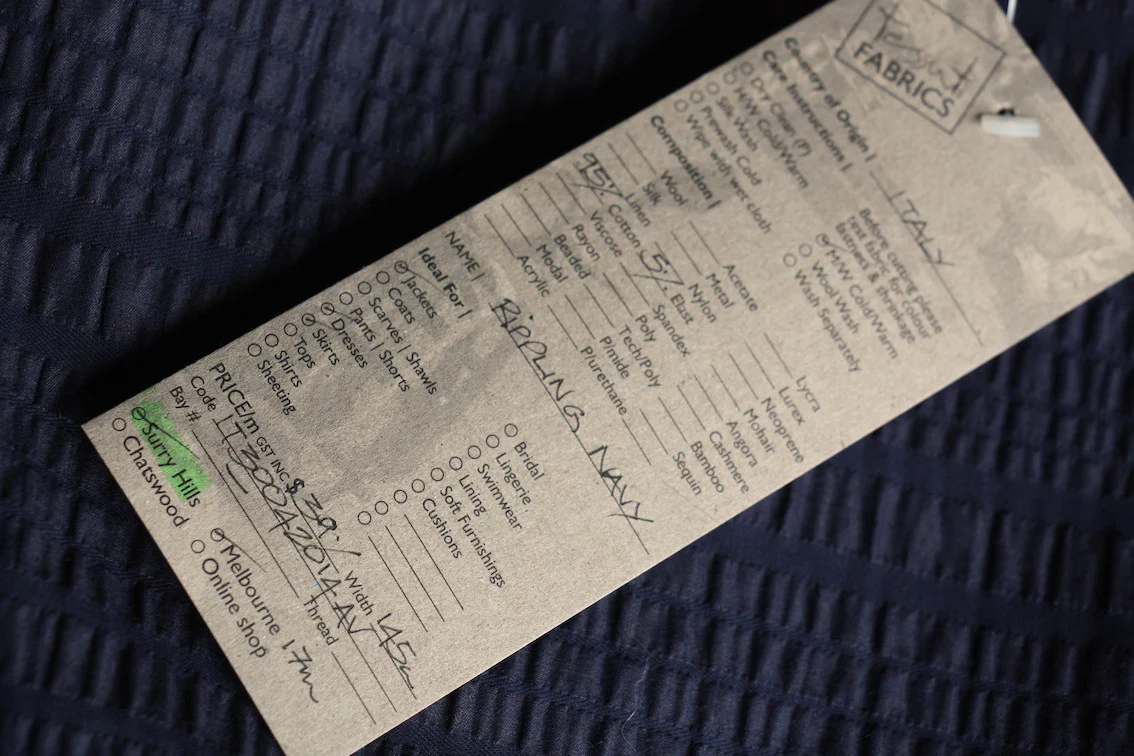 Tessuti
FABRICS
Country of Origin | ITALY
Care Instructions |
Before cutting please
test fabric for colour
fastness & shrinkage
Dry Clean (P)
M/W Cold/Warm
Silk Wash
Prewash Cold
Wipe with wet cloth
M/W Cold/Warm
Wool Wash
Wash Separately
Composition |
Wool
Silk
Linen
95% Cotton
Viscose
Rayon
Beaded
Modal
Acrylic
Acetate
Metal
Nylon
5% Elast
Spandex
Poly
Tech/Poly
P/mide
P/urethane
Lycra
Lurex
Neoprene
Mohair
Angora
Cashmere
Bamboo
Sequin
NAME | RIPPLING NAVY
Ideal For |
Jackets
Coats
Scarves | Shawls
Pants | Shorts
Dresses
Skirts
Tops
Shirts
Sheeting
Bridal
Lingerie
Swimwear
Lining
Soft Furnishings
Cushions
PRICE/m GST INC $ 39./ Width 145
Code | T30042014AV
Bay # Thread
Surry Hills
Chatswood
Melbourne 17m
Online shop